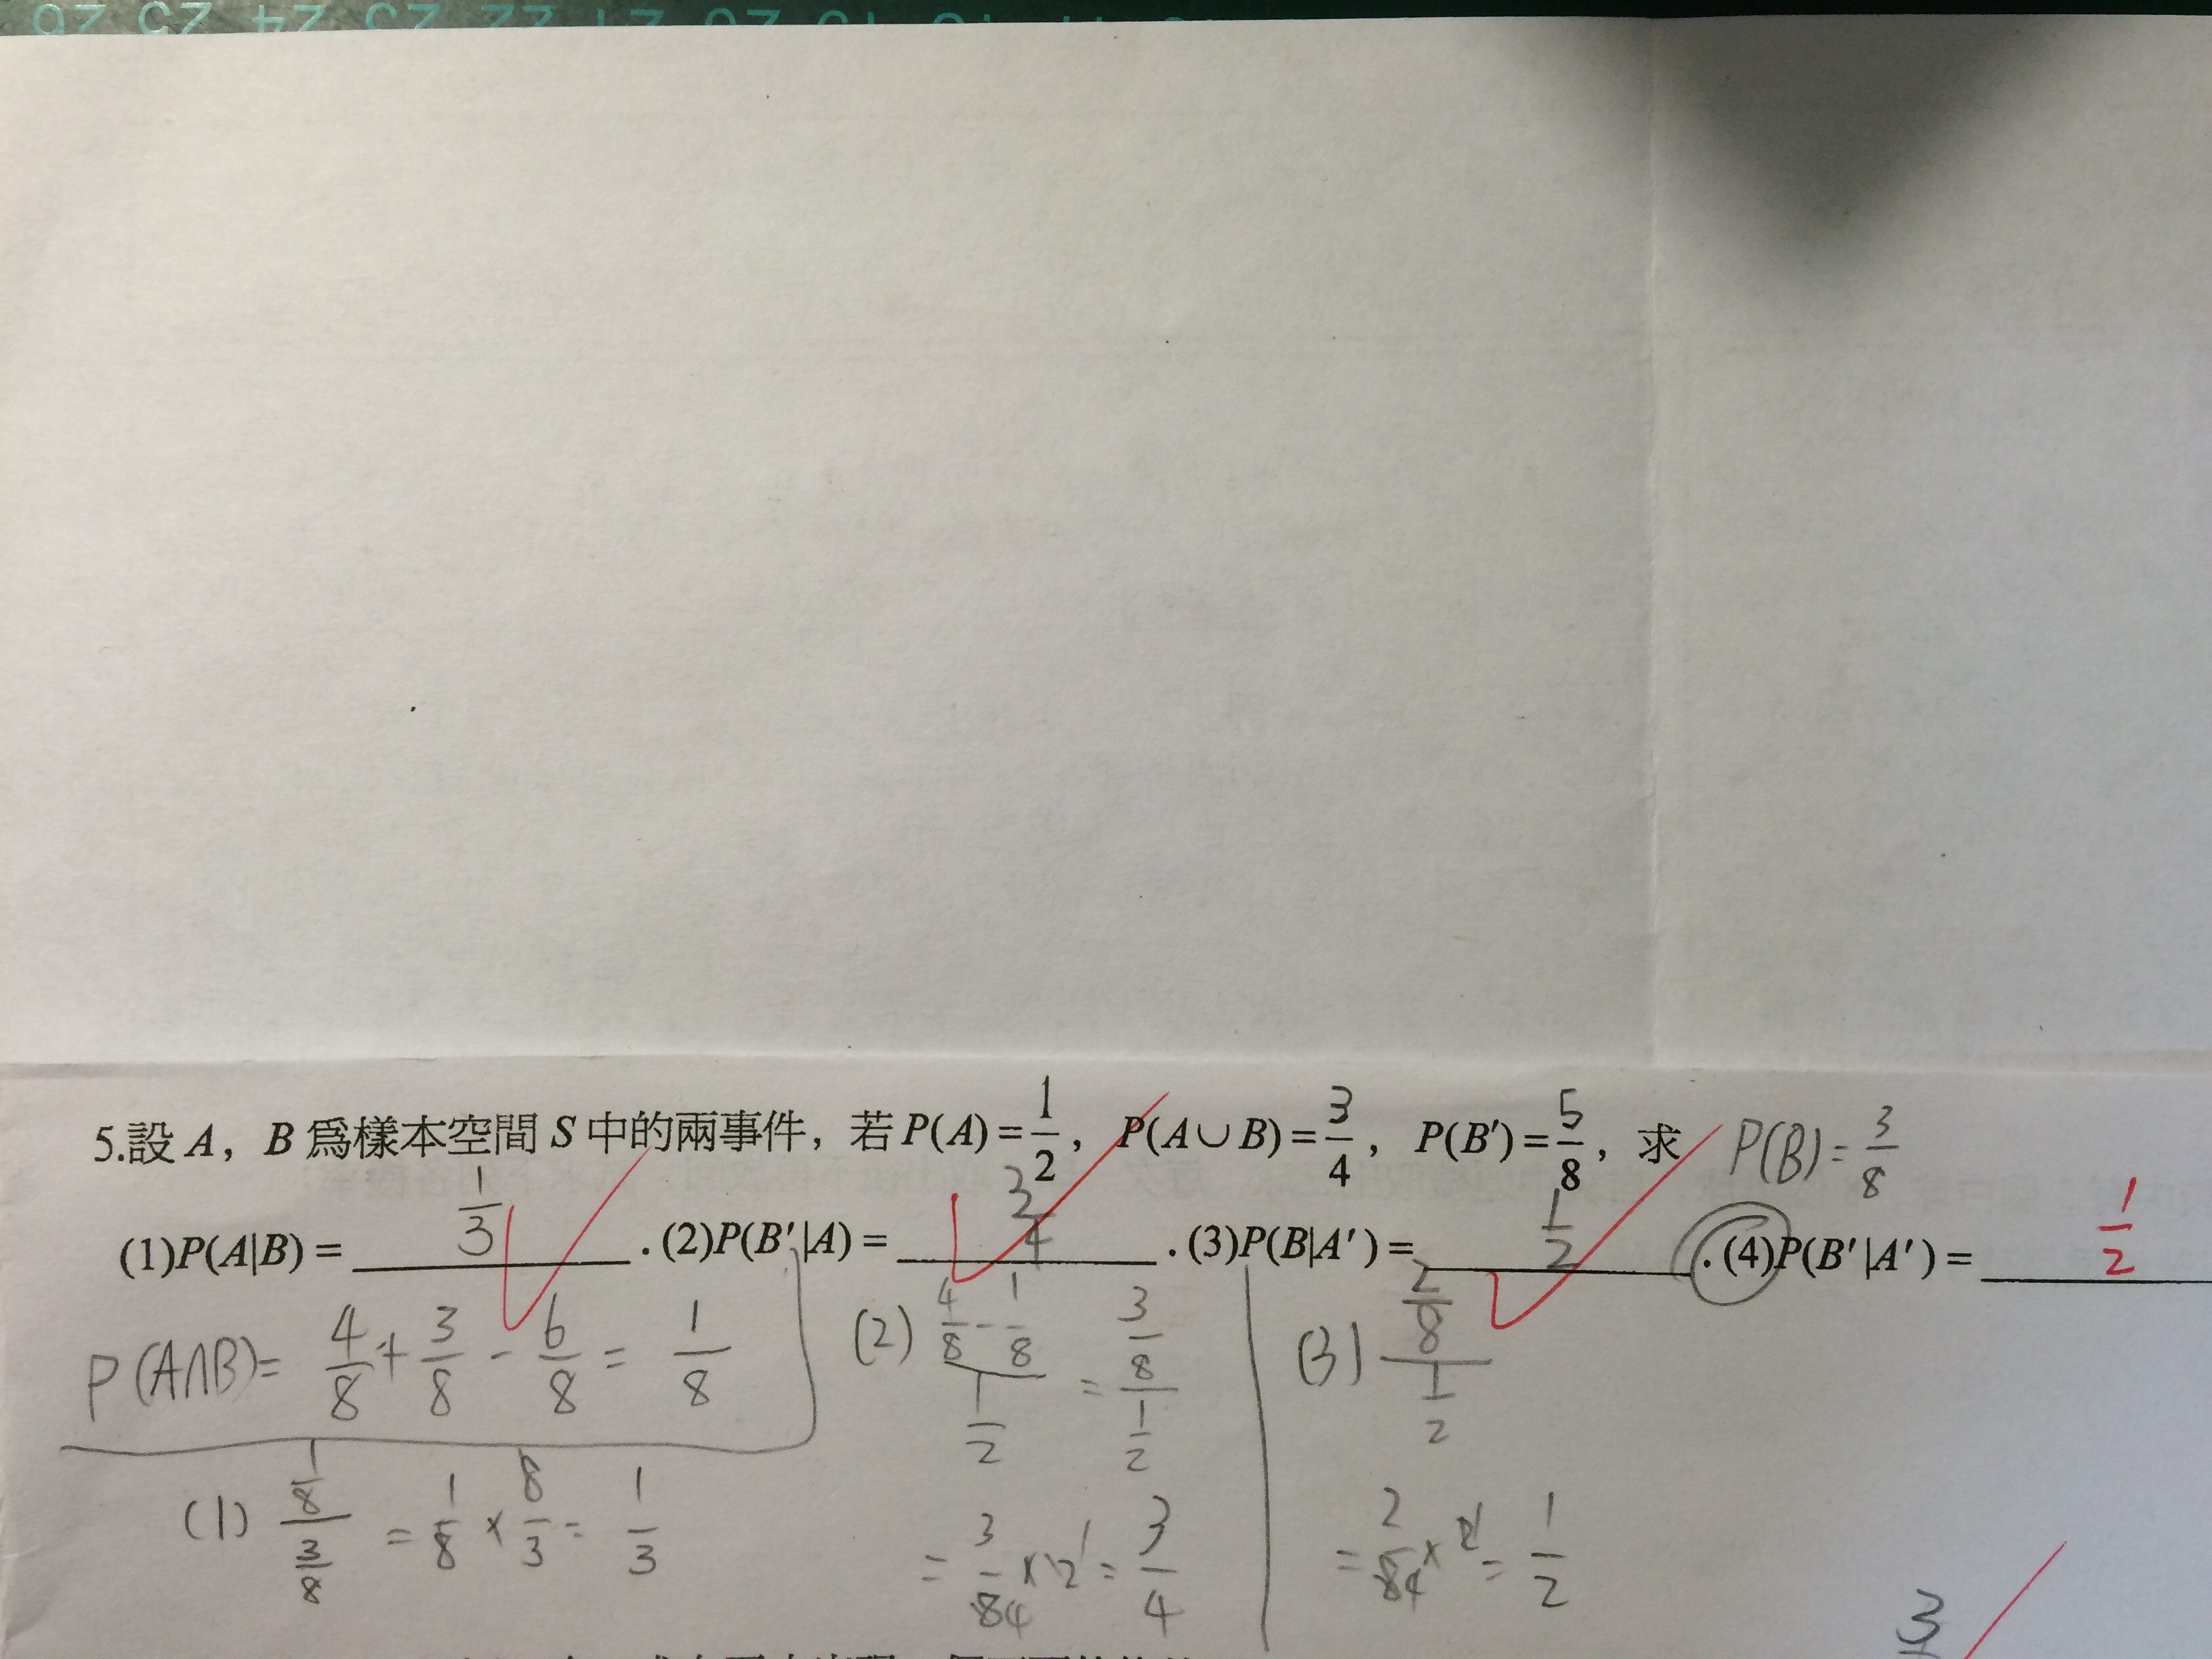 5.設 A，B 為樣本空間 S 中的兩事件，若 P(A)=1/2，P(A∪B)=3/4，P(B′)=5/8，求 P(B)=3/8
(1)P(A|B)= 1/3 .(2)P(B′|A)= 3/4 .(3)P(B|A′)= 1/2 .(4)P(B′|A′)= 1/2
P(A∩B)= 4/8 + 3/8 - 6/8 = 1/8
(1) (1/8)/(3/8) = 1/8 × 8/3 = 1/3
(2) (4/8 - 1/8)/(1/2) = (3/8)/(1/2)
= 3/84 × 2 1 = 3/4
(3) (2/8)/(1/2)
= 2/84 × 2 1 = 1/2
3